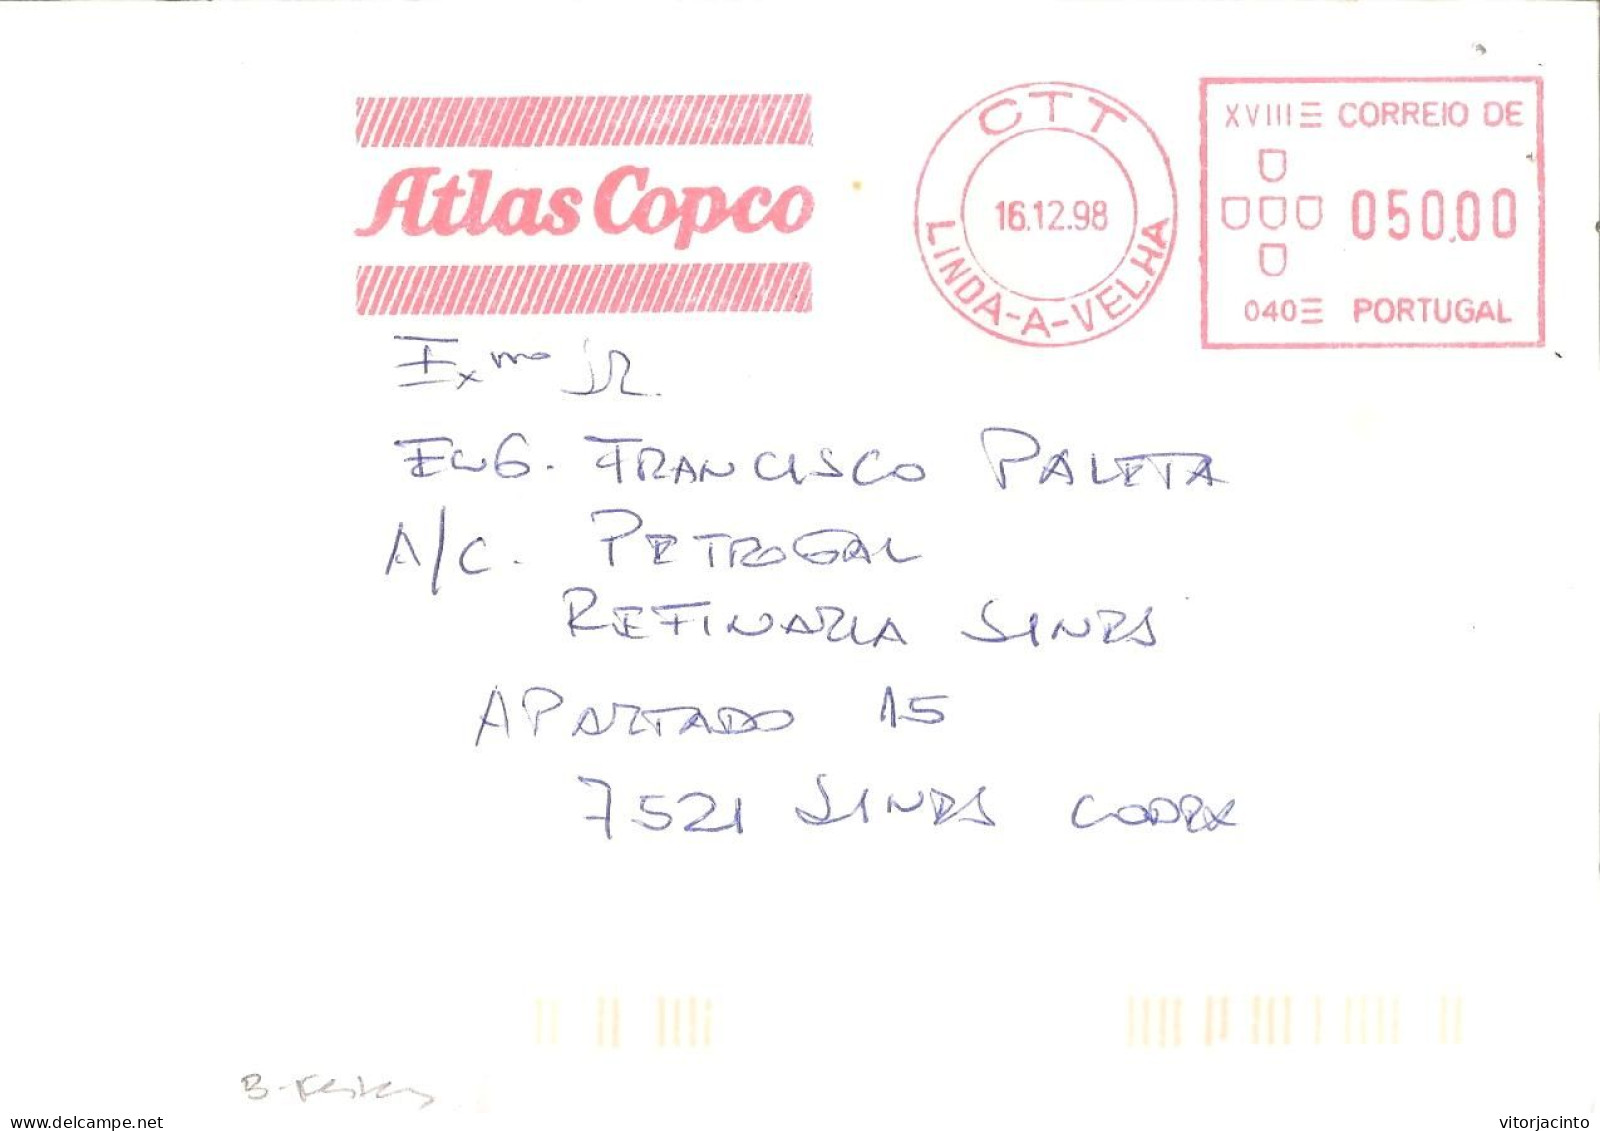 Atlas Copco
CTT
16.12.98
LINDA-A-VELHA
XVIII CORREIO DE
050,00
040 PORTUGAL
Exmo Sr.
ENG. FRANCISCO PALETA
A/C. PETROGAL
REFINARIA SINES
APARTADO 15
7521 SINES CODEX
vitorjacinto